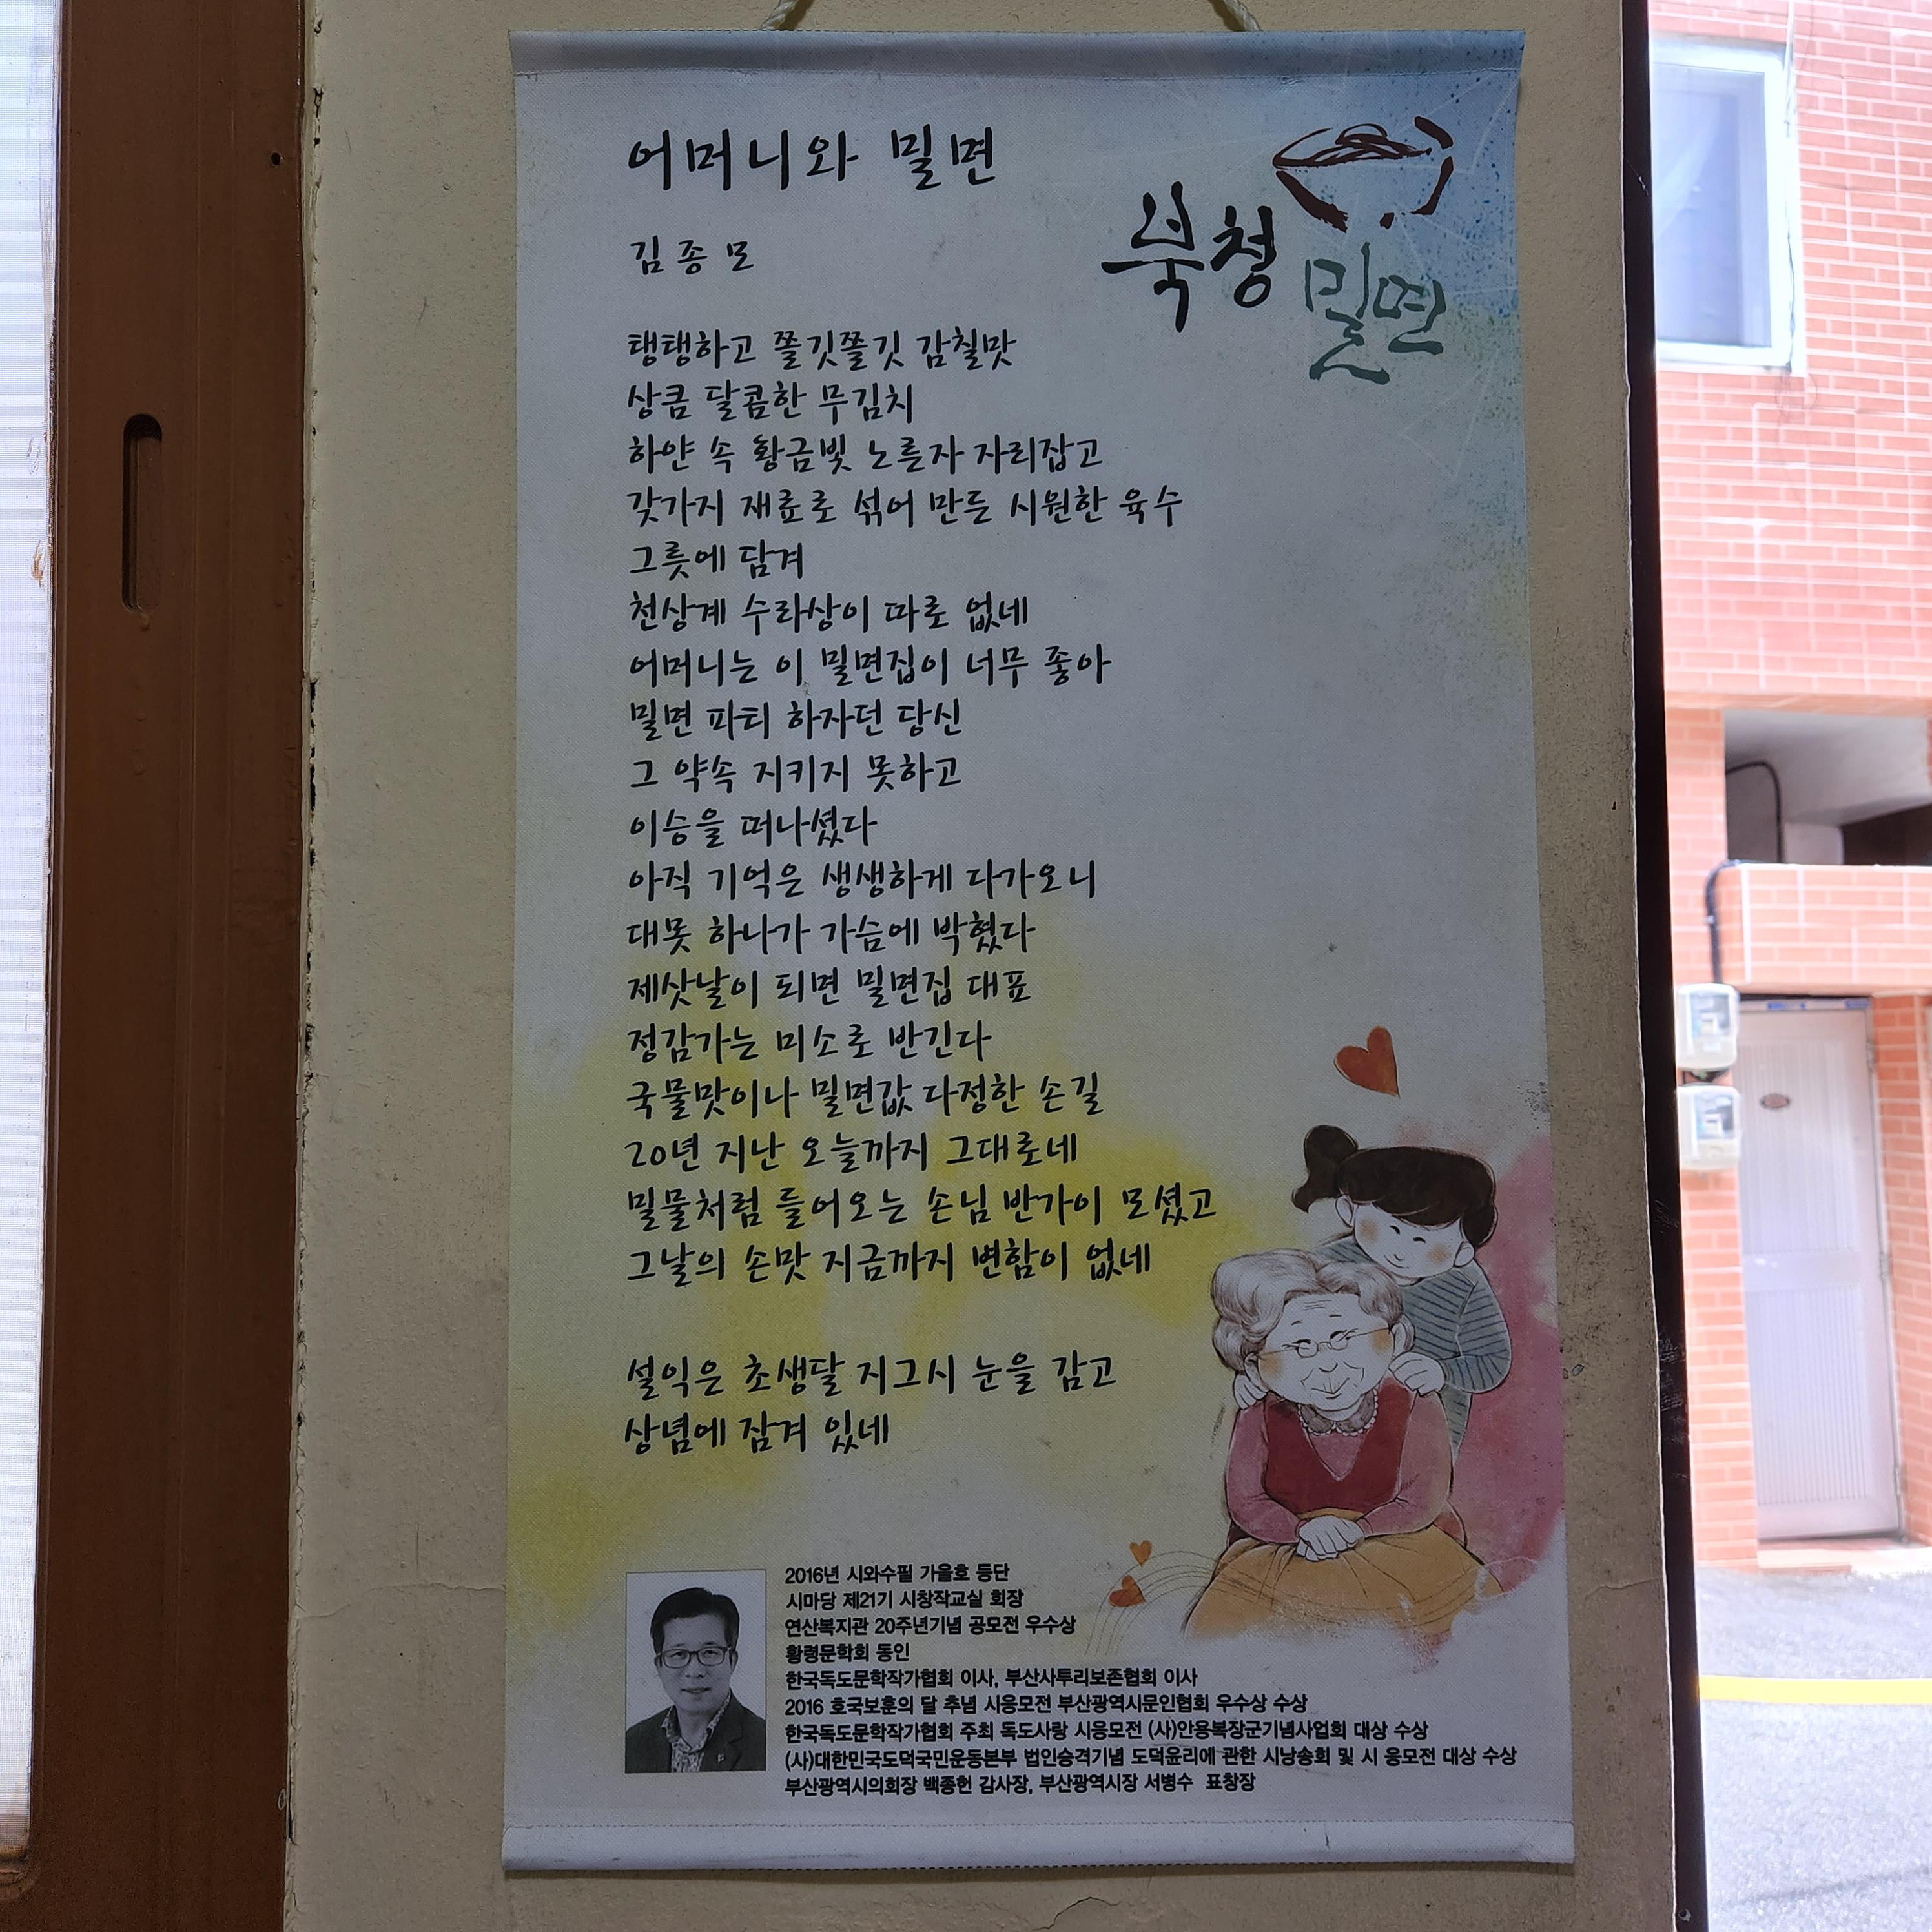 어머니와 밀면
북청
밀면
김종모
탱탱하고 쫄깃쫄깃 감칠맛
상큼 달콤한 무김치
하얀 속 황금빛 노른자 자리잡고
갖가지 재료로 섞어 만든 시원한 육수
그릇에 담겨
천상계 수라상이 따로 없네
어머니는 이 밀면집이 너무 좋아
밀면 파티 하자던 당신
그 약속 지키지 못하고
이승을 떠나셨다
아직 기억은 생생하게 다가오니
대못 하나가 가슴에 박혔다
제삿날이 되면 밀면집 대표
정감가는 미소로 반긴다
국물맛이나 밀면값 다정한 손길
20년 지난 오늘까지 그대로네
밀물처럼 들어오는 손님 반가이 모셨고
그날의 손맛 지금까지 변함이 없네
설익은 초생달 지그시 눈을 감고
상념에 잠겨 있네
2016년 시와수필 가을호 등단
시마당 제21기 시창작교실 회장
연산복지관 20주년기념 공모전 우수상
황령문학회 동인
한국독도문학작가협회 이사, 부산사투리보존협회 이사
2016 호국보훈의 달 추념 시응모전 부산광역시문인협회 우수상 수상
한국독도문학작가협회 주최 독도사랑 시응모전 (사)안용복장군기념사업회 대상 수상
(사)대한민국도덕국민운동본부 법인승격기념 도덕윤리에 관한 시낭송회 및 시 응모전 대상 수상
부산광역시의회장 백종헌 감사장, 부산광역시장 서병수 표창장